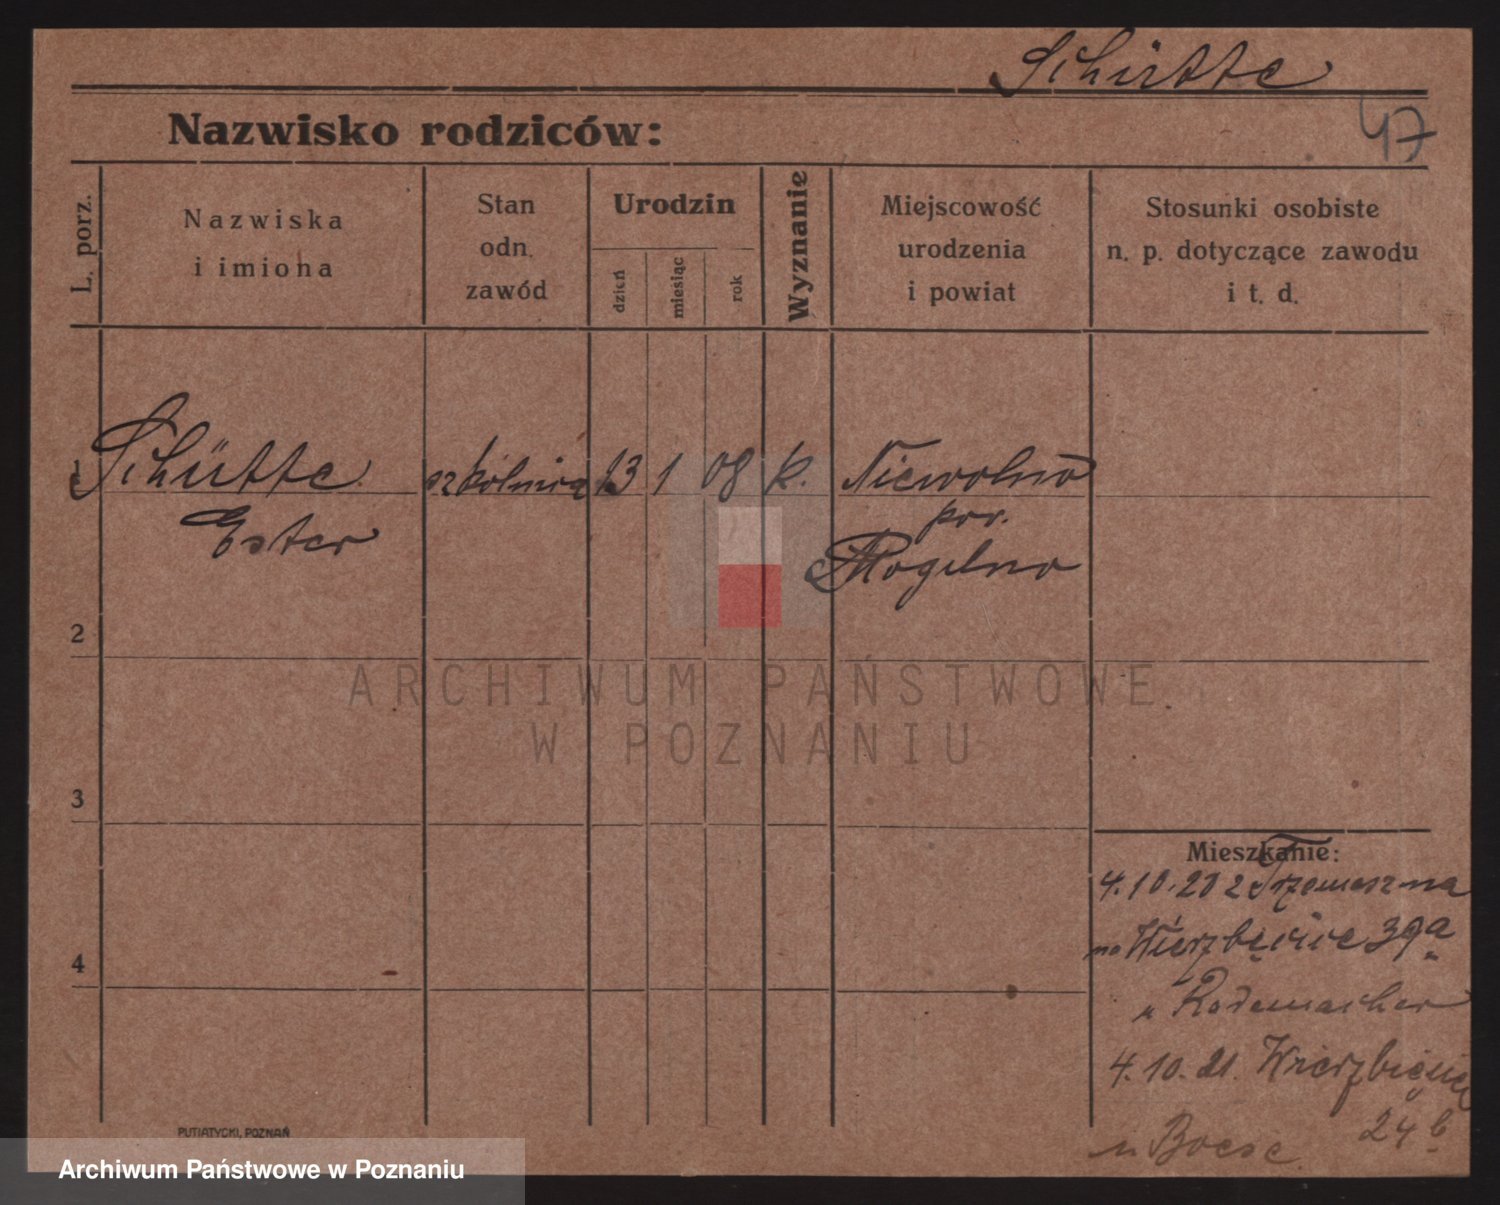 Schütte
47
Nazwisko rodziców:
L. porz.
Nazwiska
i imiona
Stan
odn.
zawód
Urodzin
dzień
miesiąc
rok
Wyznanie
Miejscowość
urodzenia
i powiat
Stosunki osobiste
n. p. dotyczące zawodu
i t. d.
1 Schütte szkolnica 13 1 08 k. Niewolno
Ester pow.
Mogilno
2
3
4
Mieszkanie:
4.10.20 z Trzemeszna
na Wierzbięcice 39a
u Rademacher
4.10.21. Wierzbięcice
24b
u Boese
PUTIATYCKI, POZNAŃ
ARCHIWUM PAŃSTWOWE
W POZNANIU
Archiwum Państwowe w Poznaniu